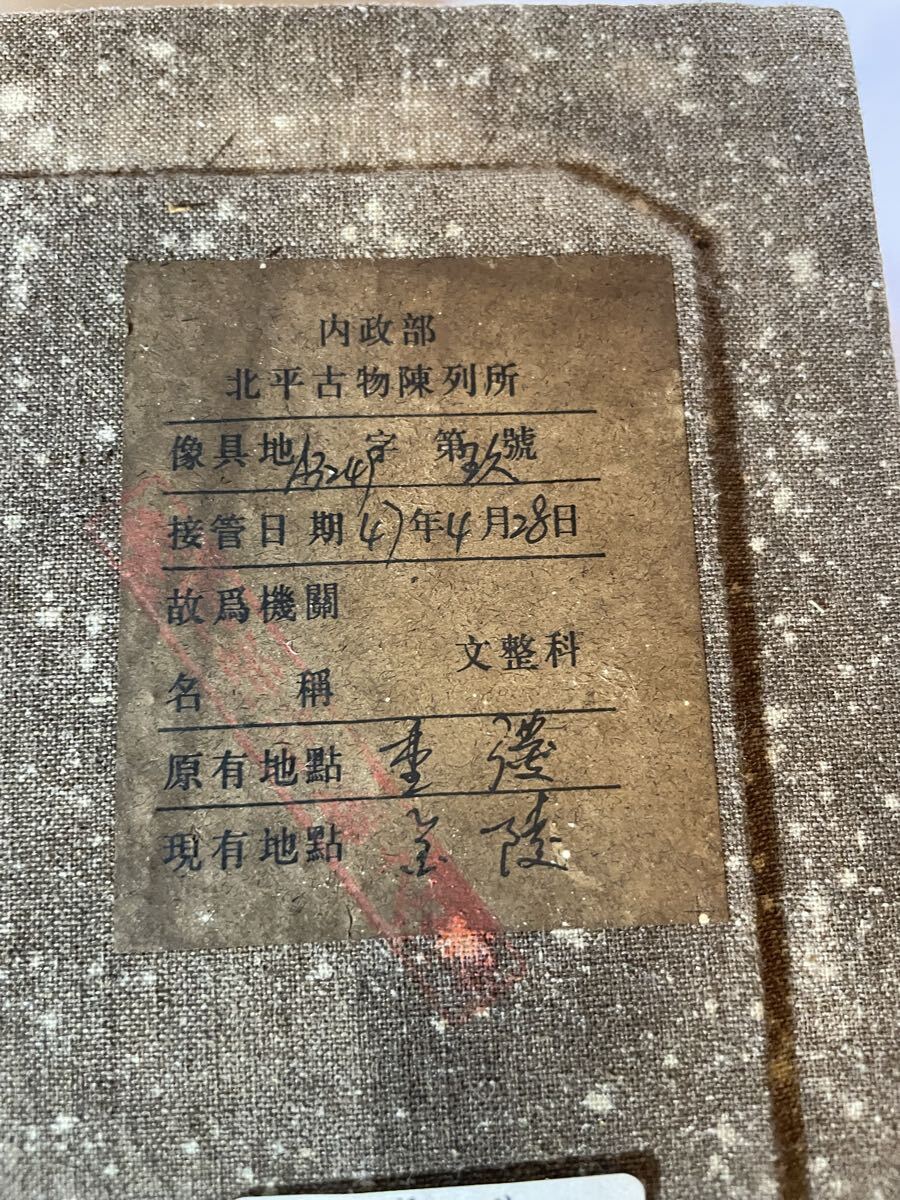 内政部
北平古物陳列所
像具地 字 第 號
接管日期 47年4月28日
故爲機關
文整科
名 稱
原有地點
現有地點 金陵